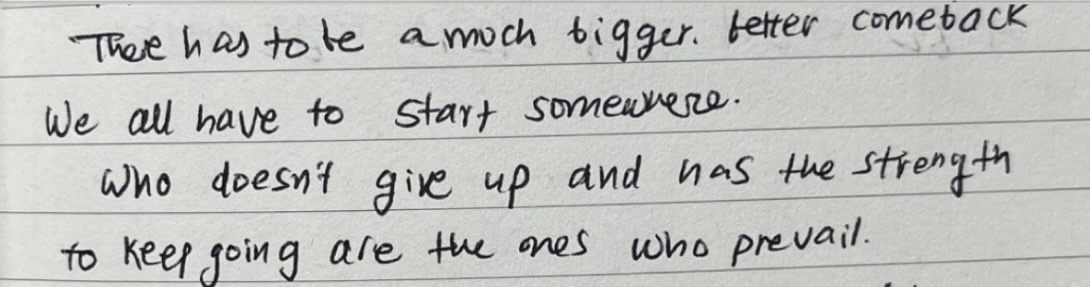 There has to be a much bigger. better comeback
We all have to start somewhere.
Who doesn't give up and has the strength
to keep going are the ones who prevail.